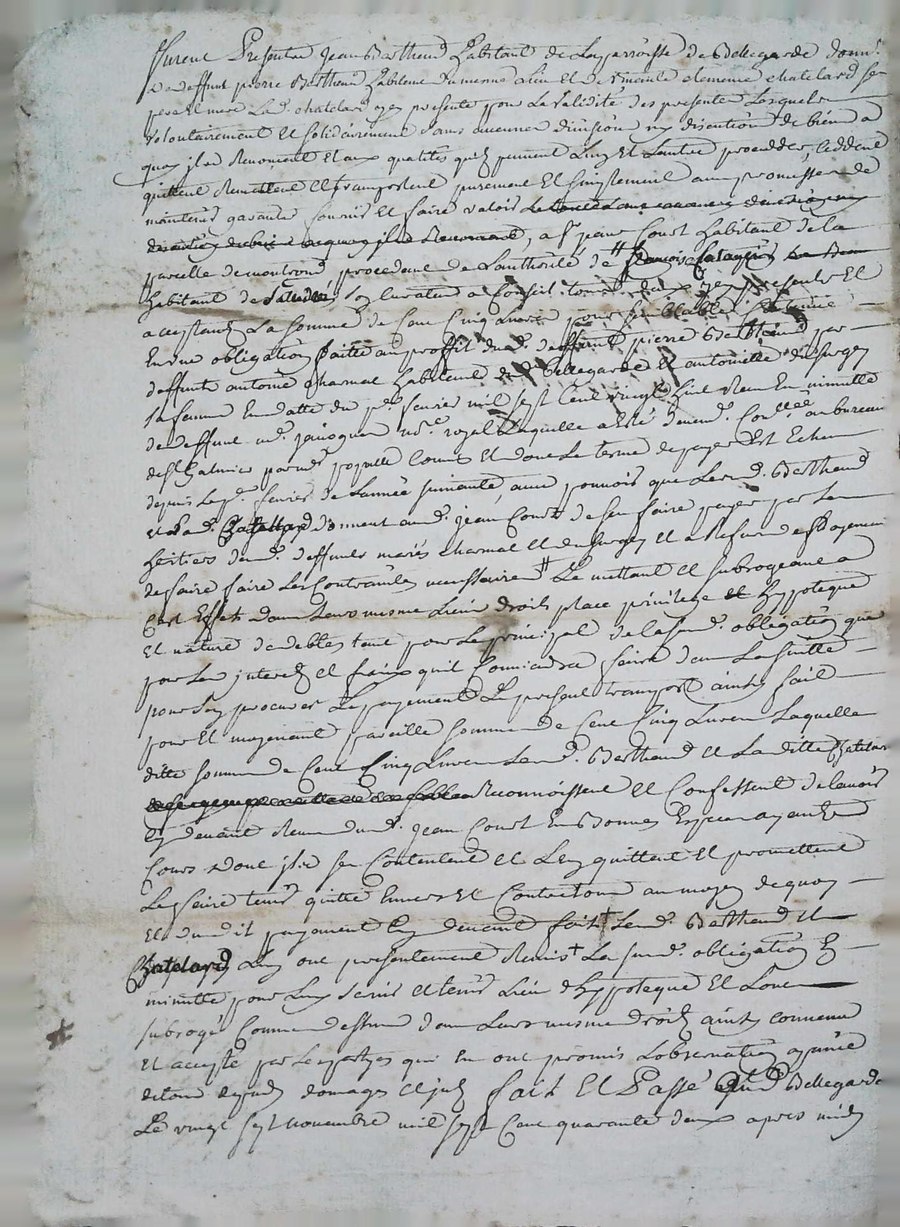 furent Presents Jean Berthaud habitant de la parroisse de Bellegarde donn.
de deffunt pierre Berthaud habitant du mesme lieu et de vivante clemence chatelard ses
pere et mere lad. chatelard icy presente pour la validité des presente lesquels
volontairement et solidairement sans aucune division ny discution de biens a
quoy ils renoncent et aux qualités quils prennent luy et lautre proceder, cedent
quittent remettent et transportent purement et simplement aux promesses de
maintenir garantir fournir et faire valoir
a Sr jean Court habitant de la
parcelle de montrond procedant de lauthorité de
habitant de son curateur a conseil icy present et
acceptant la somme de Cent Cinq livres pour semblable contenue
en une obligation faitte au proffit dud. deffunt pierre Berthaud par
deffunts antoine charnal habitant dud. Bellegarde et antoinette
sa femme en datte du pr. fevrier mil sept cent vingt huit receu en minutte
de deffunt me. jacoquen nore. royal laquelle a esté deuem. Conllée au bureau
de St Galmier par commis et dont le terme de payer est Echeu
depuis le pr. fevrier de lannée suivante, avec pouvoir que led. Berthaud
et lad. Chatellard donnent aud. jean Court de sen faire payer par les
heritiers desd. deffunts mariés charnal et et a refus de payement
de faire faire les Contraintes necessaires le mettant et subrogeant a
Cest Effet dans leurs mesme lieu droits place privilege et hypoteque
et nature de debtes tant pour le principal de la sud. obligation que
pour les interets et fraix quil Conviendra faire dans la suitte
pour sen procurer le payement le present transport ainsy fait
pour et moyenant pareille somme de Cent Cinq livres laquelle
ditte somme de Cent Cinq livres led. Berthaud et la ditte Chatelard
Reconnoissent et Confessent de lavoir
cy devant Receu dud. jean Court en Bonnes Especes ayant
Cours dont ils se Contentent et len quittent et promettent
le faire tenir quitte Envers et Contre tous au moyen de quoy
et dudit payement cy devant fait led. Berthaud et
Chatelard luy ont presentement Remis la sud. obligation En
minutte pour luy servir et tenir lieu dhypoteque et
subrogé Comme dessus dans leurs mesme droits ainsy convenu
et accepté par les partyes qui En ont promis lobservation a peine
de tous depends domages et jnt. fait et Passé aud. Bellegarde
Le vingt sept novembre mil sept Cent quarante deux apres midy